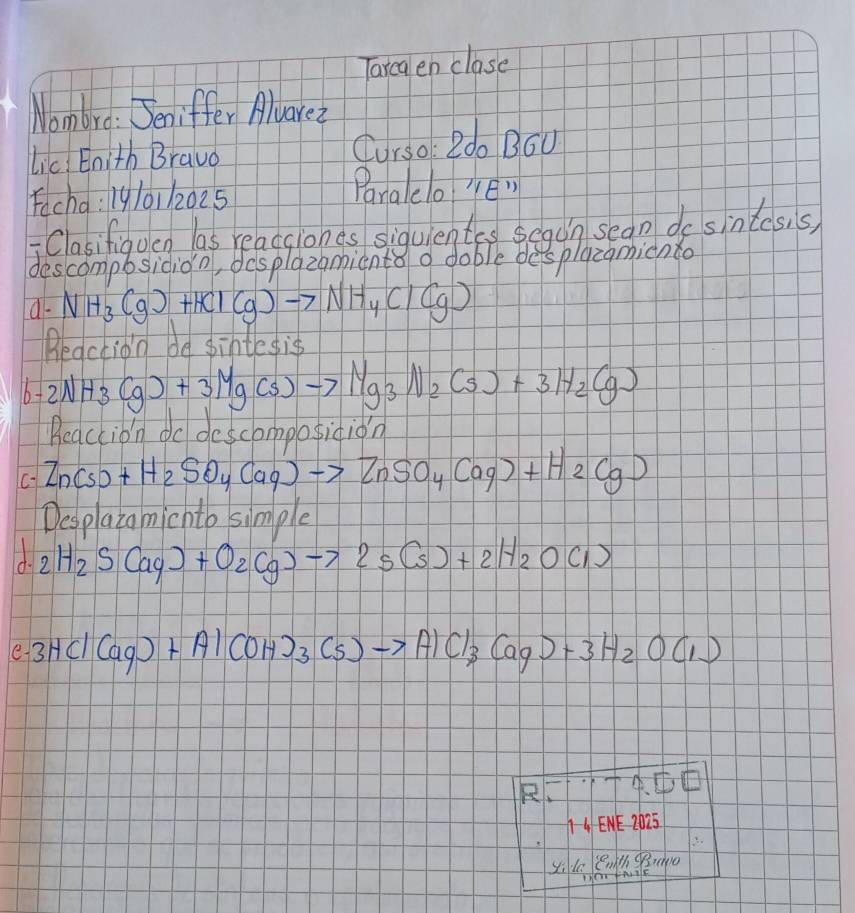 Tarea en clase
Nombre: Jeniffer Alvarez
Lic: Enith Bravo Curso: 2do BGU
Fecha: 14/01/2025 Paralelo: "E"
- Clasifiquen las reacciones siguientes según sean de sintesis,
descomposición, desplazamiento o doble desplazamiento
a- NH3 (g) + HCl (g) → NH4Cl (g)
Reacción de sintesis
b- 2NH3 (g) + 3Mg (s) → Mg3N2 (s) + 3H2 (g)
Reacción de descomposición
c- Zn(s) + H2SO4 (aq) → ZnSO4 (aq) + H2 (g)
Desplazamiento simple
d. 2H2S (aq) + O2 (g) → 2s (s) + 2H2O (l)
e-3HCl (aq) + Al(OH)3 (s) → AlCl3 (aq) + 3H2O (l)
14 ENE 2025
Enith Bravo